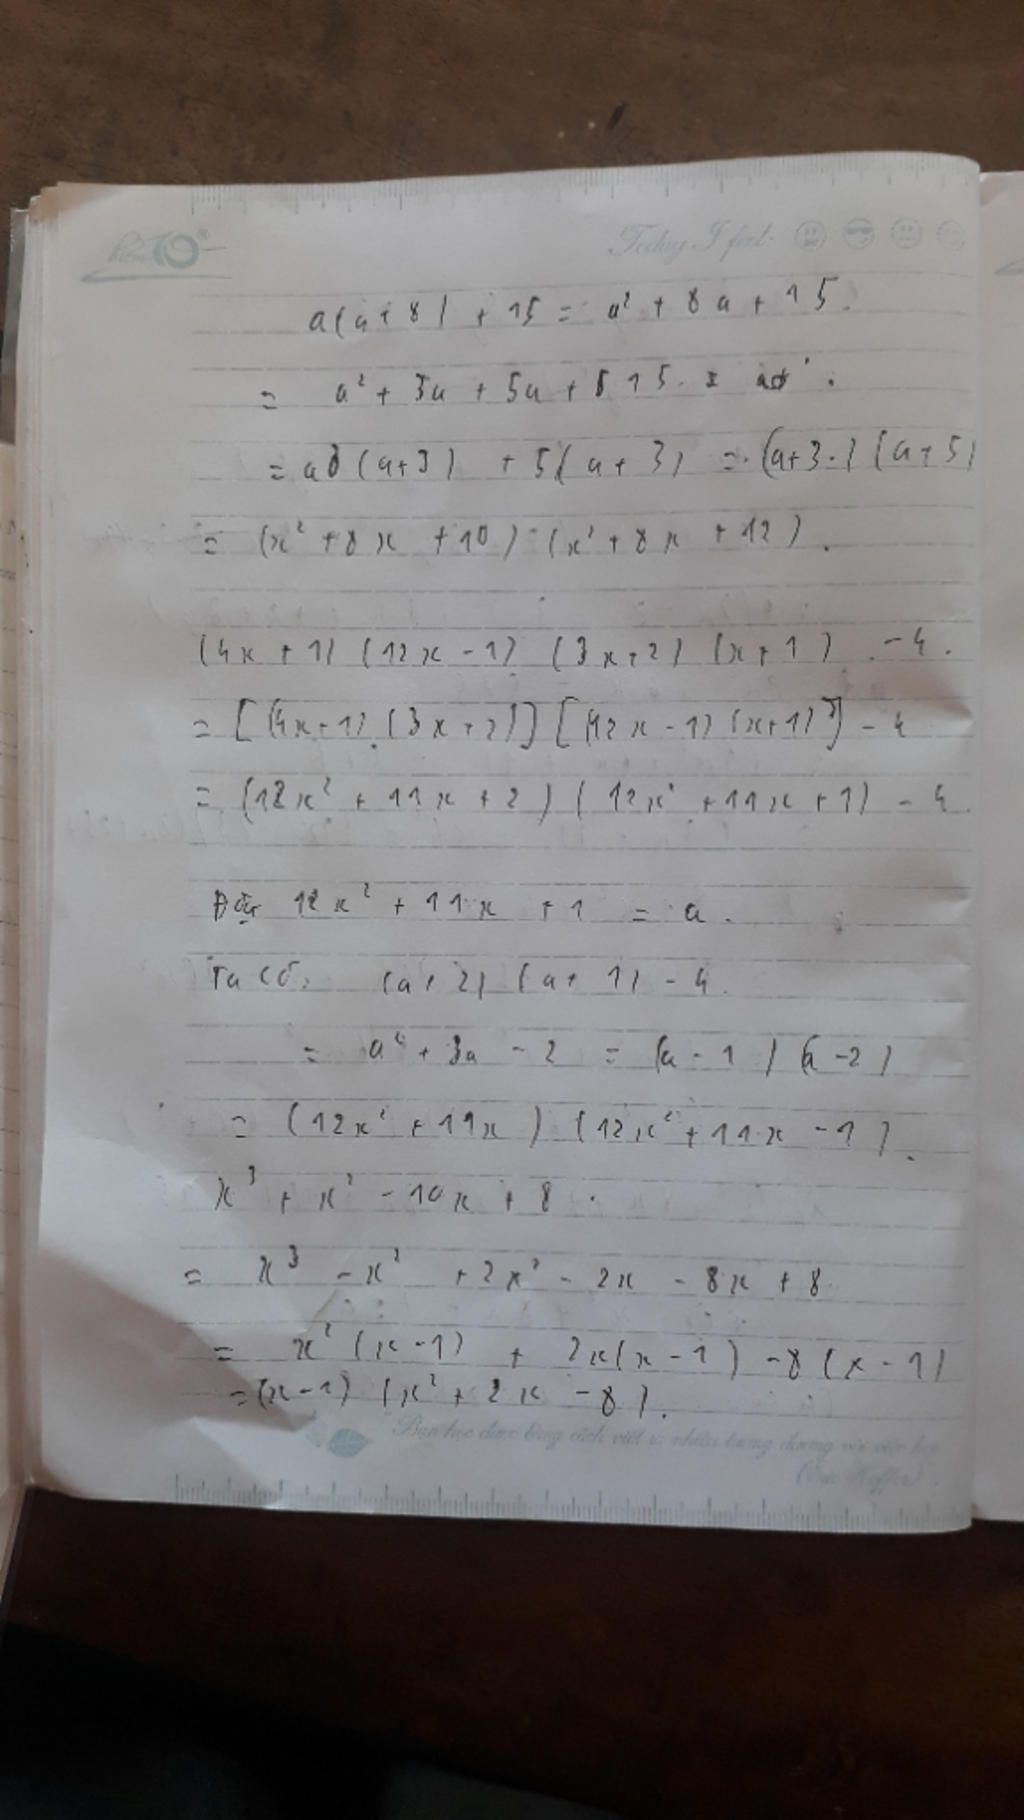 Today I feel
a(a+8) + 15 = a² + 8a + 15.
= a² + 3a + 5a + 15.
= a (a+3) + 5(a+3) = (a+3) (a+5)
= (x² + 8x + 10) (x² + 8x + 12).
(4x + 1) (12x - 1) (3x+2) (x+1) - 4.
= [(4x+1) (3x+2)] [(12x - 1) (x+1)] - 4
= (12x² + 11x + 2) (12x² + 11x + 1) - 4
Đặt 12x² + 11x + 1 = a.
Ta có, (a+2) (a+1) - 4.
= a² + 3a - 2 = (a - 1) (a - 2)
= (12x² + 11x) (12x² + 11x - 1).
x³ + x² - 10x + 8.
= x³ - x² + 2x² - 2x - 8x + 8
= x² (x-1) + 2x(x - 1) - 8 (x - 1)
= (x-1) (x² + 2x - 8).
Bạn học được bằng cách viết nhiều tương đương với việc học
(Eric Hoffer)